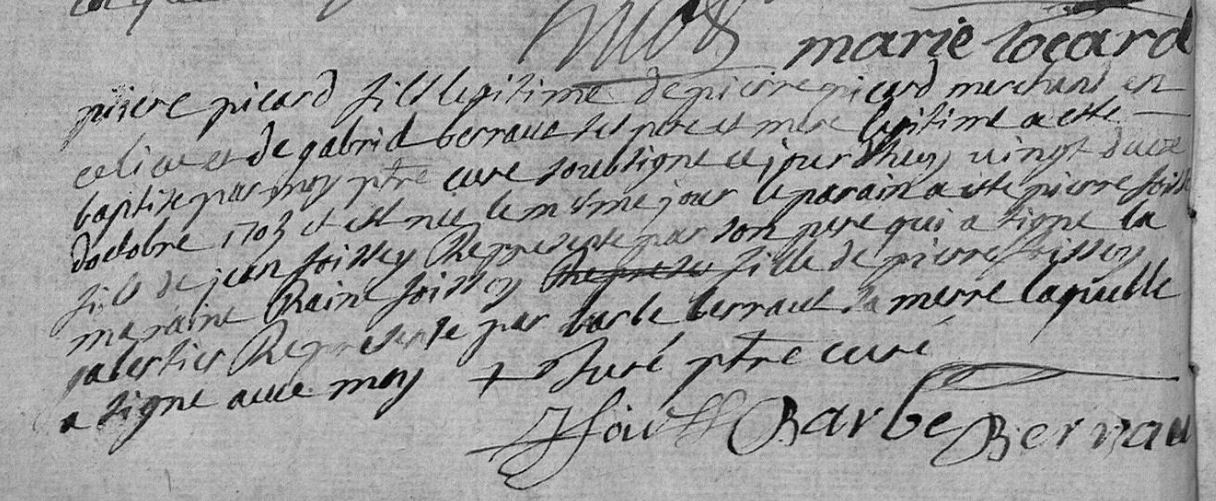 marie tocard
pierre picard fils legitime de pierre picard marchand en
ce lieu et de gabriel bernaut ses pere et mere legitime a este
baptise par moy ptre curé soubsigné ce jourdhuy vingt deuxe
doctobre 1703 et est nee le mesme jour le parain a este pierre soisse
fils de jean soissey Represente par son pere qui a signe la
maraine Raine soissey fille de pierre soissey
gabertier Represente par barbe bernaut sa merre laquelle
a signe avec moy + Juré ptre curé
Barbe Bernau